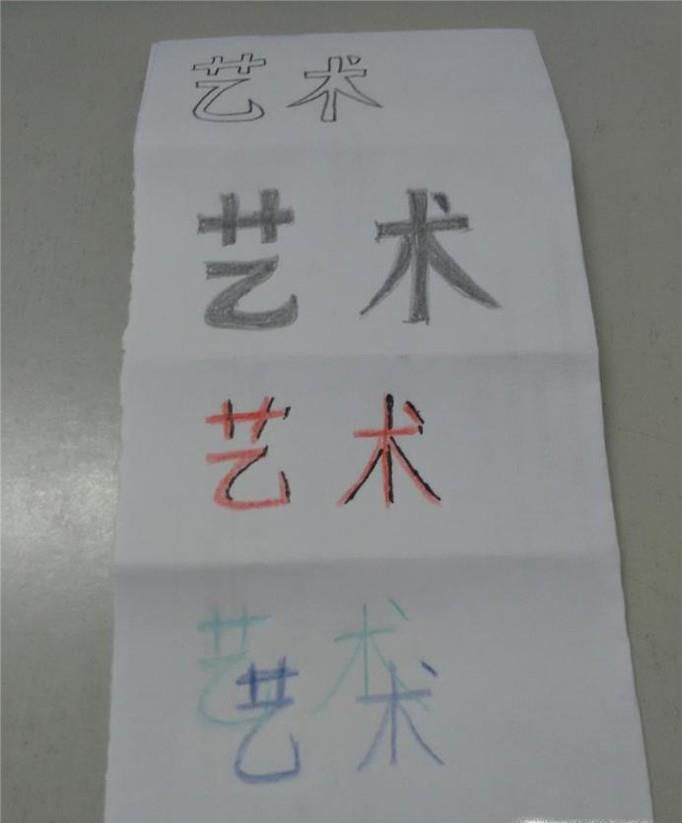 艺术
艺术
艺术
艺术
艺术